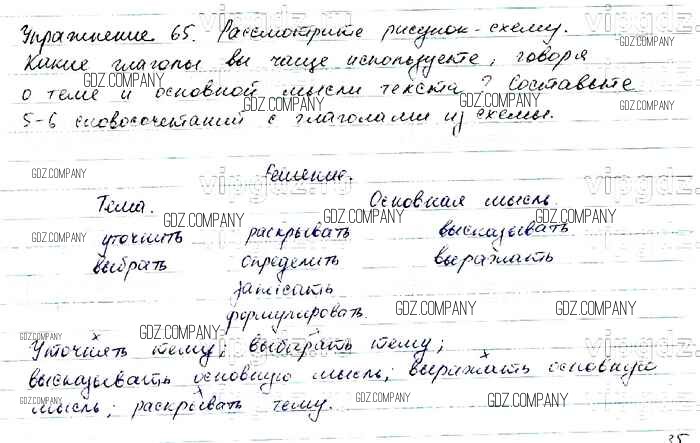 Упражнение 65. Рассмотрите рисунок-схему.
Какие глаголы вы чаще используете, говоря
о теме и основной мысли текста? Составьте
5-6 словосочетаний с глаголами из схемы.
Решение.
Тема. Основная мысль.
уточнить раскрывать высказывать
выбрать определить выражать
записать
формулировать.
Уточнять тему; выбирать тему;
высказывать основную мысль; выражать основную
мысль; раскрывать тему.
35
vipgdz.ru
GDZ.COMPANY